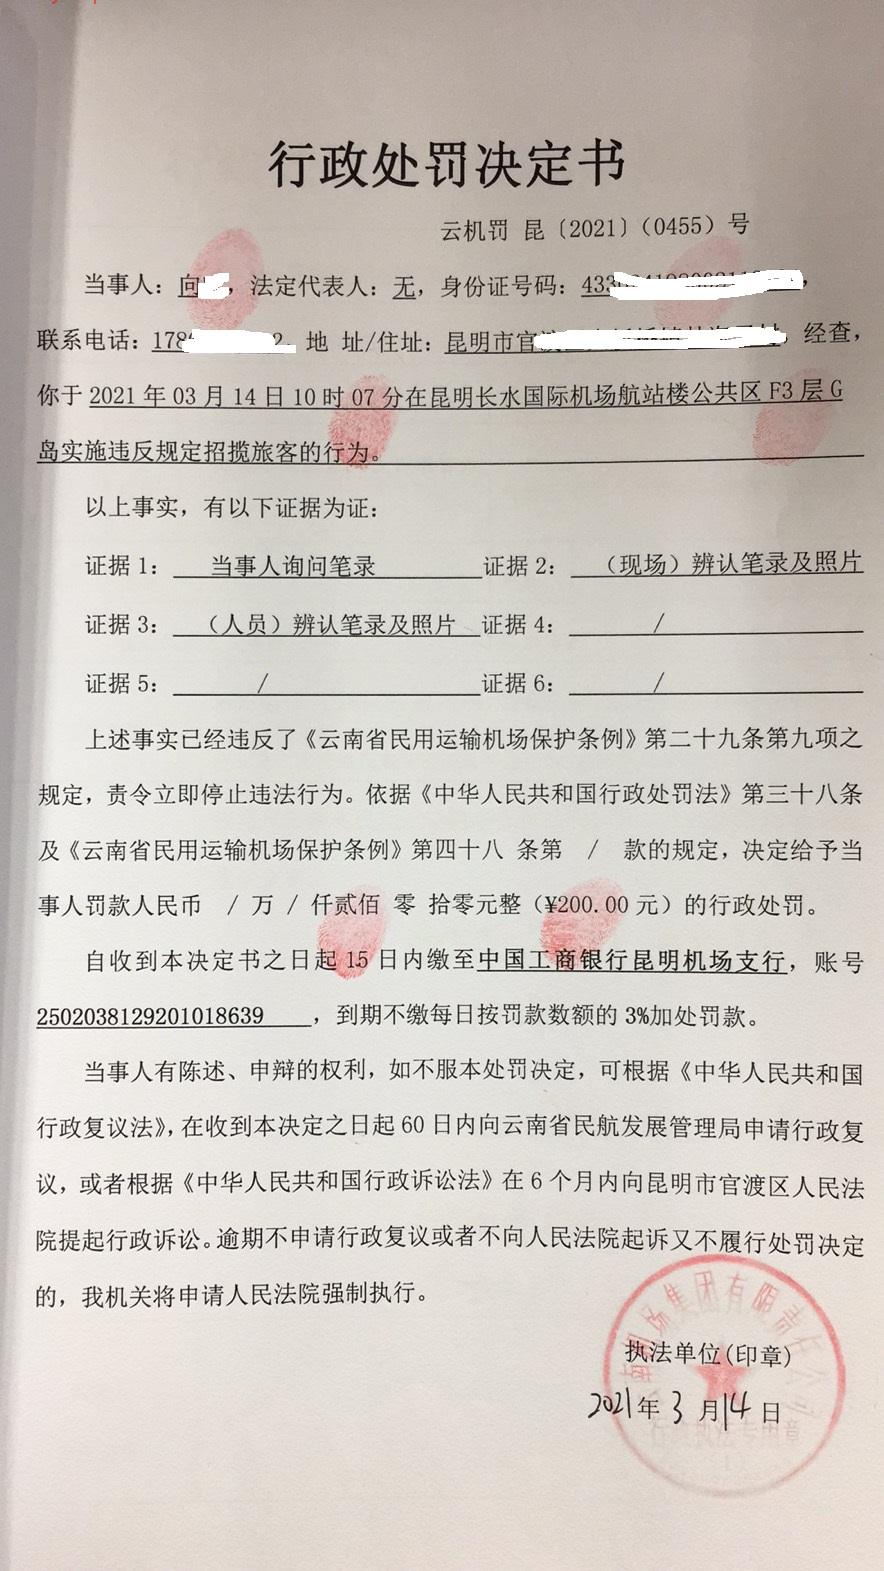 行政处罚决定书
云机罚 昆〔2021〕（0455）号
当事人：向，法定代表人：无，身份证号码：433，
联系电话：178 2. 地 址/住址：昆明市官 经查，
你于 2021 年 03 月 14 日 10 时 07 分在昆明长水国际机场航站楼公共区 F3 层 G
岛实施违反规定招揽旅客的行为。
以上事实，有以下证据为证：
证据 1： 当事人询问笔录 证据 2： （现场）辨认笔录及照片
证据 3： （人员）辨认笔录及照片 证据 4： /
证据 5： / 证据 6： /
上述事实已经违反了《云南省民用运输机场保护条例》第二十九条第九项之
规定，责令立即停止违法行为。依据《中华人民共和国行政处罚法》第三十八条
及《云南省民用运输机场保护条例》第四十八 条第 / 款的规定，决定给予当
事人罚款人民币 / 万 / 仟贰佰 零 拾零元整（¥200.00 元）的行政处罚。
自收到本决定书之日起 15 日内缴至中国工商银行昆明机场支行，账号
2502038129201018639 ，到期不缴每日按罚款数额的 3%加处罚款。
当事人有陈述、申辩的权利，如不服本处罚决定，可根据《中华人民共和国
行政复议法》，在收到本决定之日起 60 日内向云南省民航发展管理局申请行政复
议，或者根据《中华人民共和国行政诉讼法》在 6 个月内向昆明市官渡区人民法
院提起行政诉讼。逾期不申请行政复议或者不向人民法院起诉又不履行处罚决定
的，我机关将申请人民法院强制执行。
南机场集团有限责任公司
执法单位(印章)
2021 年 3 月 14 日
行政执法专用章